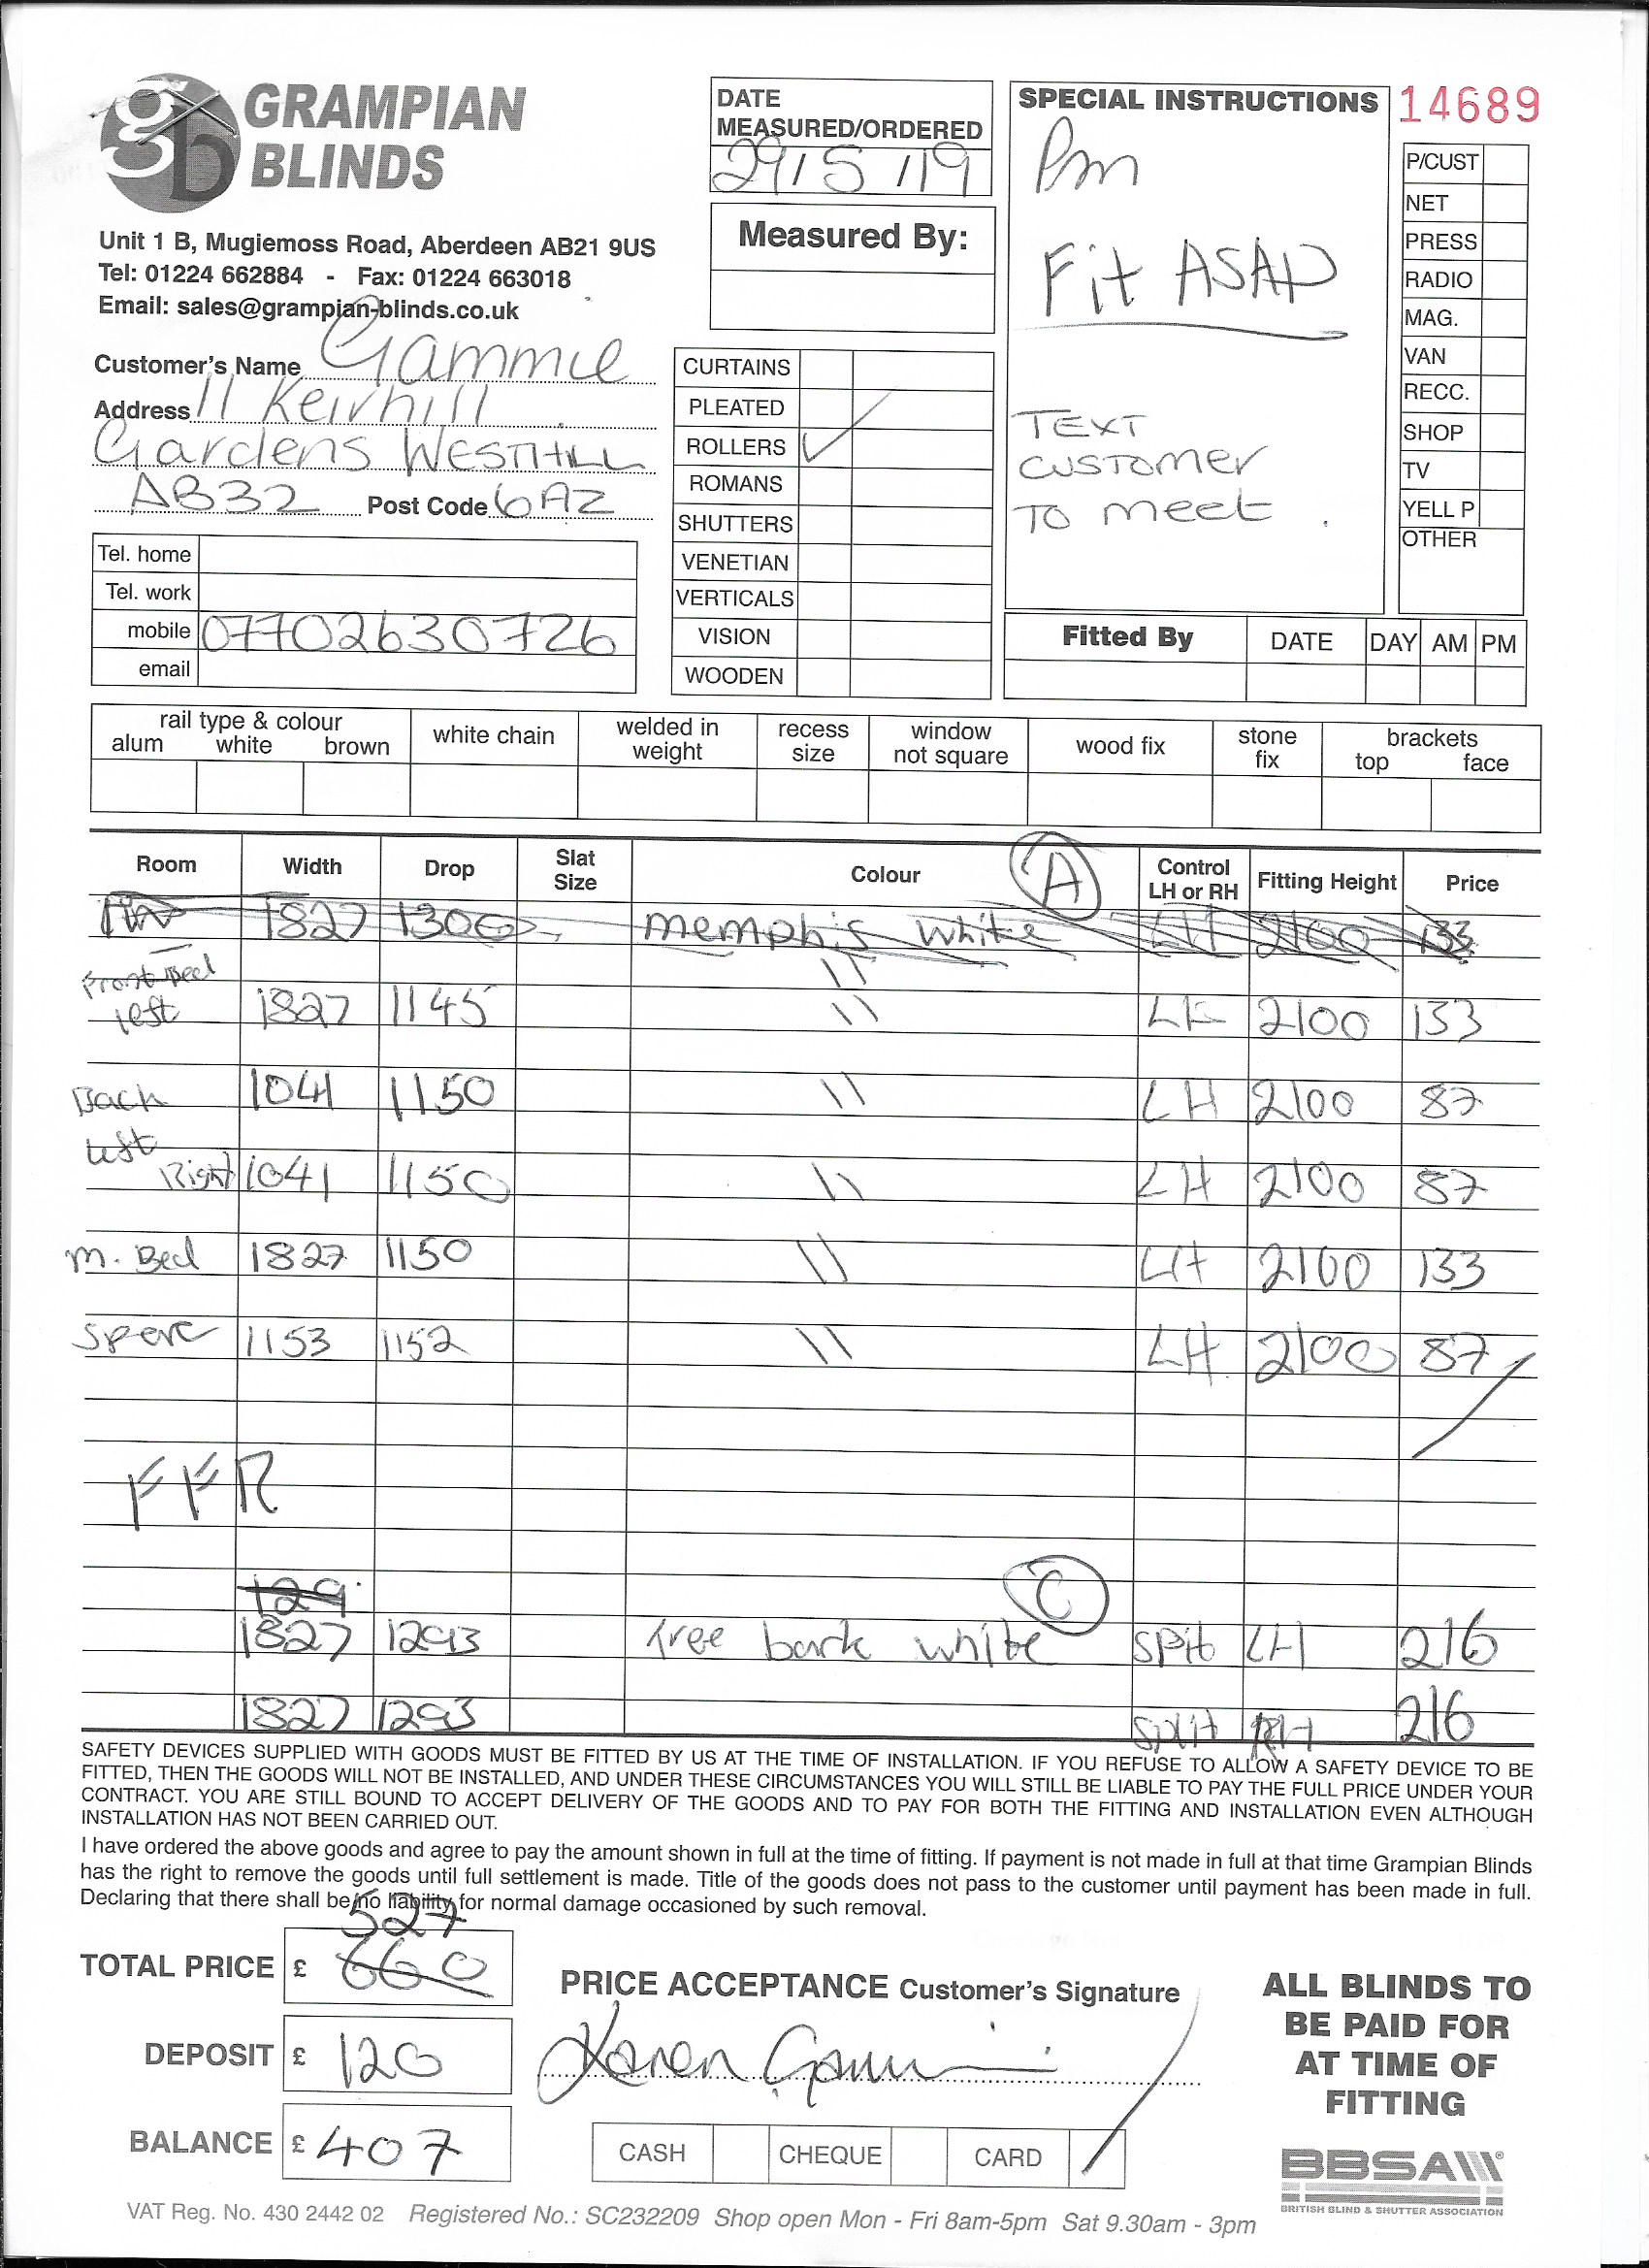 GRAMPIAN
BLINDS
Unit 1 B, Mugiemoss Road, Aberdeen AB21 9US
Tel: 01224 662884 - Fax: 01224 663018
Email: sales@grampian-blinds.co.uk
Customer's Name Gammie
Address 11 Keirhill
Gardens WESTHILL
AB32 Post Code 6AZ
Tel. home
Tel. work
mobile 07702630726
email
DATE
MEASURED/ORDERED
29/5/19
Measured By:
CURTAINS
PLEATED
ROLLERS ✓
ROMANS
SHUTTERS
VENETIAN
VERTICALS
VISION
WOODEN
SPECIAL INSTRUCTIONS
Pm
Fit ASAP
TEXT
CUSTOMER
TO meet.
14689
P/CUST
NET
PRESS
RADIO
MAG.
VAN
RECC.
SHOP
TV
YELL P
OTHER
Fitted By DATE DAY AM PM
rail type & colour
alum white brown
white chain
welded in
weight
recess
size
window
not square
wood fix
stone
fix
brackets
top face
Room Width Drop Slat Size Colour A Control LH or RH Fitting Height Price
1827 1300 memphis white LH 2100 133
\\
Front Bed
left 1827 1145 \\ 2100 133
Back 1041 1150 \\ LH 2100 87
left
Right 1041 1150 \\ LH 2100 87
M. Bed 1827 1150 \\ LH 2100 133
Spare 1153 1152 \\ LH 2100 87
FFR
129 C
1827 1293 Tree bark white split LH 216
1827 1293 split RH 216
SAFETY DEVICES SUPPLIED WITH GOODS MUST BE FITTED BY US AT THE TIME OF INSTALLATION. IF YOU REFUSE TO ALLOW A SAFETY DEVICE TO BE
FITTED, THEN THE GOODS WILL NOT BE INSTALLED, AND UNDER THESE CIRCUMSTANCES YOU WILL STILL BE LIABLE TO PAY THE FULL PRICE UNDER YOUR
CONTRACT. YOU ARE STILL BOUND TO ACCEPT DELIVERY OF THE GOODS AND TO PAY FOR BOTH THE FITTING AND INSTALLATION EVEN ALTHOUGH
INSTALLATION HAS NOT BEEN CARRIED OUT.
I have ordered the above goods and agree to pay the amount shown in full at the time of fitting. If payment is not made in full at that time Grampian Blinds
has the right to remove the goods until full settlement is made. Title of the goods does not pass to the customer until payment has been made in full.
Declaring that there shall be no liability for normal damage occasioned by such removal.
527
TOTAL PRICE £ 660
DEPOSIT £ 120
BALANCE £ 407
PRICE ACCEPTANCE Customer's Signature
Karen Gammie
CASH CHEQUE CARD /
ALL BLINDS TO
BE PAID FOR
AT TIME OF
FITTING
BBSA
BRITISH BLIND & SHUTTER ASSOCIATION
VAT Reg. No. 430 2442 02 Registered No.: SC232209 Shop open Mon - Fri 8am-5pm Sat 9.30am - 3pm